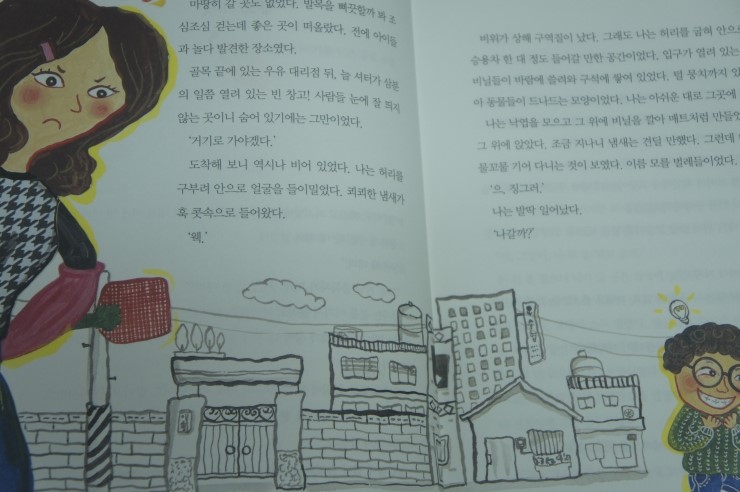 마땅히 갈 곳도 없었다. 발목을 삐끗할까 봐 조
심조심 걷는데 좋은 곳이 떠올랐다. 전에 아이들
과 놀다 발견한 장소였다.
골목 끝에 있는 우유 대리점 뒤, 늘 셔터가 삼분
의 일쯤 열려 있는 빈 창고! 사람들 눈에 잘 띄지
않는 곳이니 숨어 있기에는 그만이었다.
‘거기로 가야겠다.’
도착해 보니 역시나 비어 있었다. 나는 허리를
구부려 안으로 얼굴을 들이밀었다. 퀴퀴한 냄새가
훅 콧속으로 들어왔다.
‘웩.’
비위가 상해 구역질이 났다. 그래도 나는 허리를 굽혀 안으
승용차 한 대 정도 들어갈 만한 공간이었다. 입구가 열려 있는
비닐들이 바람에 쓸려와 구석에 쌓여 있었다. 털 뭉치까지 있
아 동물들이 드나드는 모양이었다. 나는 아쉬운 대로 그곳에
나는 낙엽을 모으고 그 위에 비닐을 깔아 매트처럼 만들었
그 위에 앉았다. 조금 지나니 냄새는 견딜 만했다. 그런데
물꼬물 기어 다니는 것이 보였다. 이름 모를 벌레들이었다.
‘으, 징그러.’
나는 발딱 일어났다.
‘나갈까?’